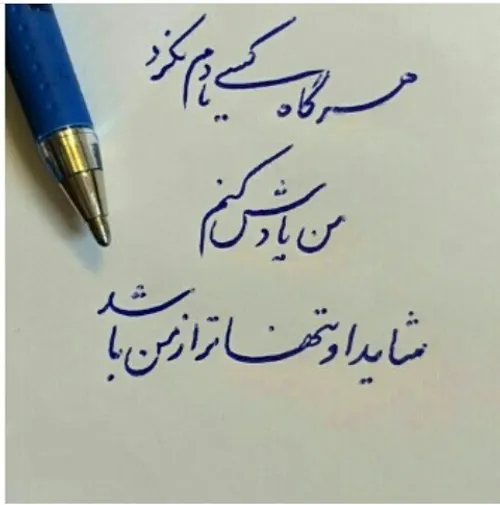 هرگاه کسی یادم نکرد
من یادش کنم
شاید او تنها تر از من باشد